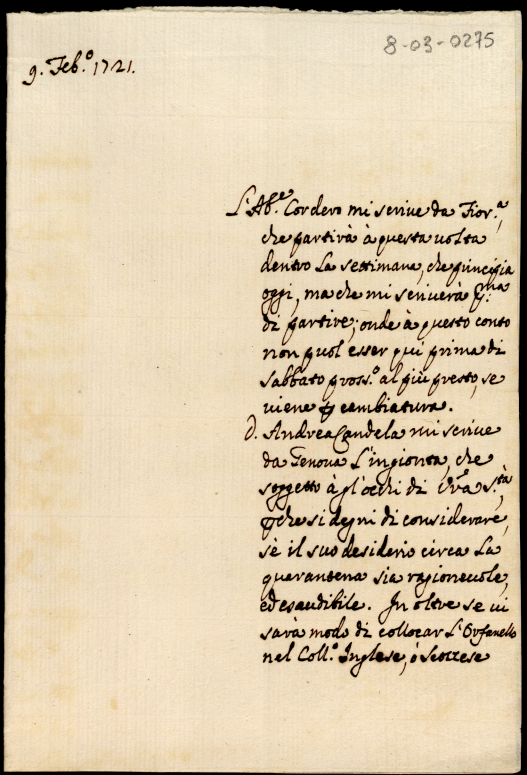 8-03-0275
9. Feb.º 1721.
L'Ab.e Cordero mi scrive da Fior.a,
che partirà à questa volta
dentro La settimana, che principia
oggi, ma che mi scriverà p.ma
di partire; onde à questo conto
non puol esser qui prima di
Sabbato pross.º al più presto, se
viene ꝑ cambiatura.
D. Andrea Candela mi scrive
da Genova L'ingionta, che
soggetto à gl'occhi di Vr̃a S.tà,
ꝑche si degni di considerare,
sè il suo desiderio circa La
quarantena sia ragionevole,
ed esaudibile. In oltre se vi
sarà modo di collocar L'Orfanello
nel Coll.º Inglese, ò Scozzese